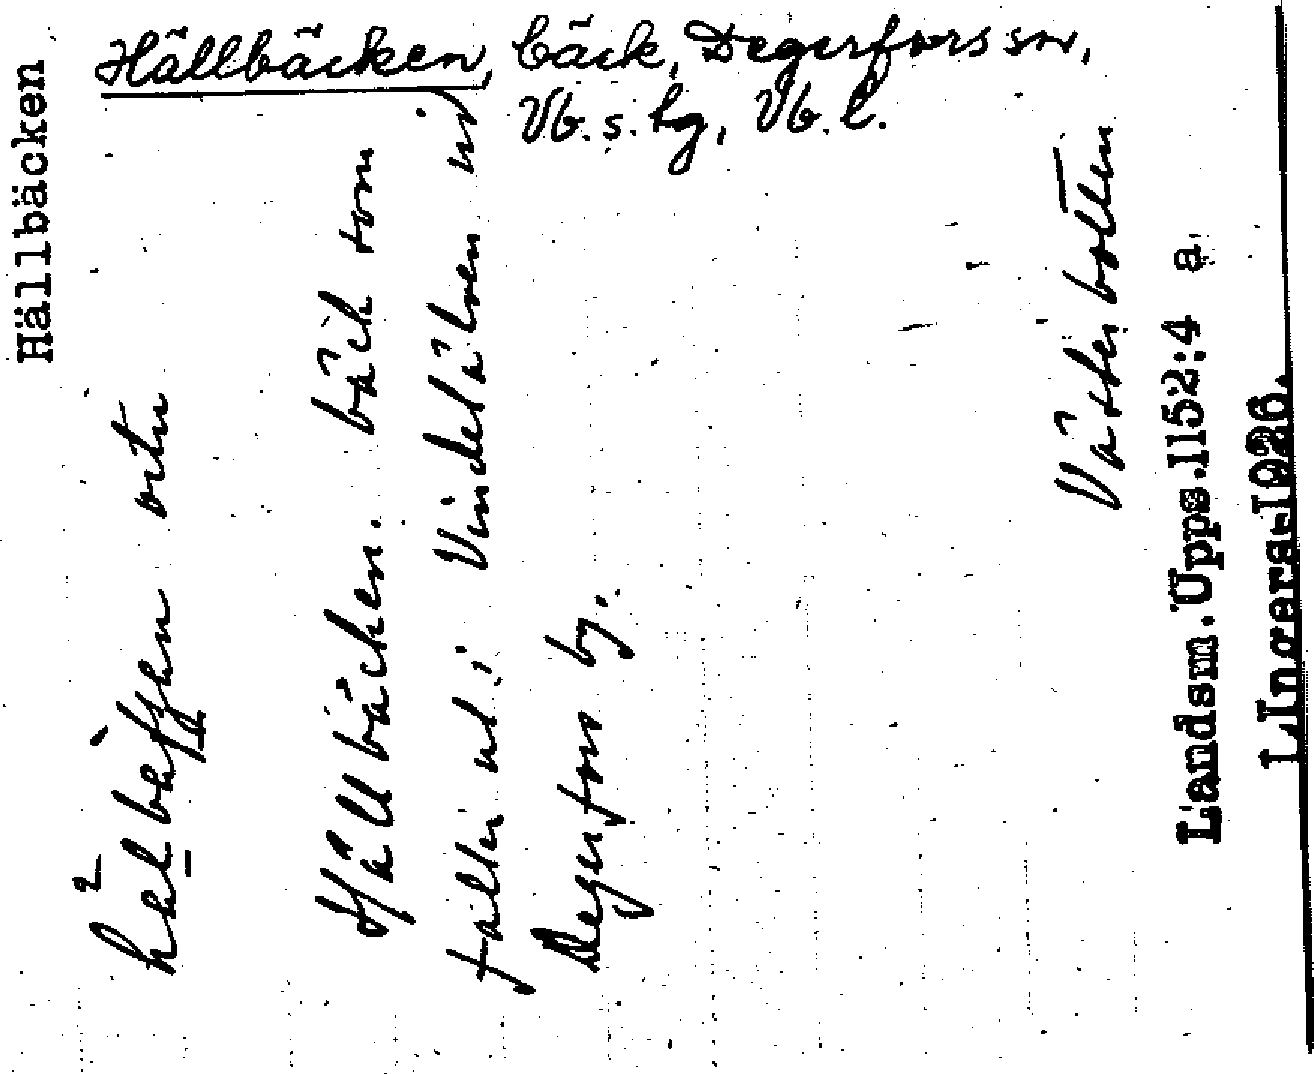 Hällbäcken, bäck, Degerfors sn,
Vb. s. lg, Vb. l.
Hällbäcken
Hällbäcken. bäck som
faller ut i Vindelälven vid
Degerfors by.
Västerbotten
Landsm. Upps. 1152:4 a
L Ingers 1926.